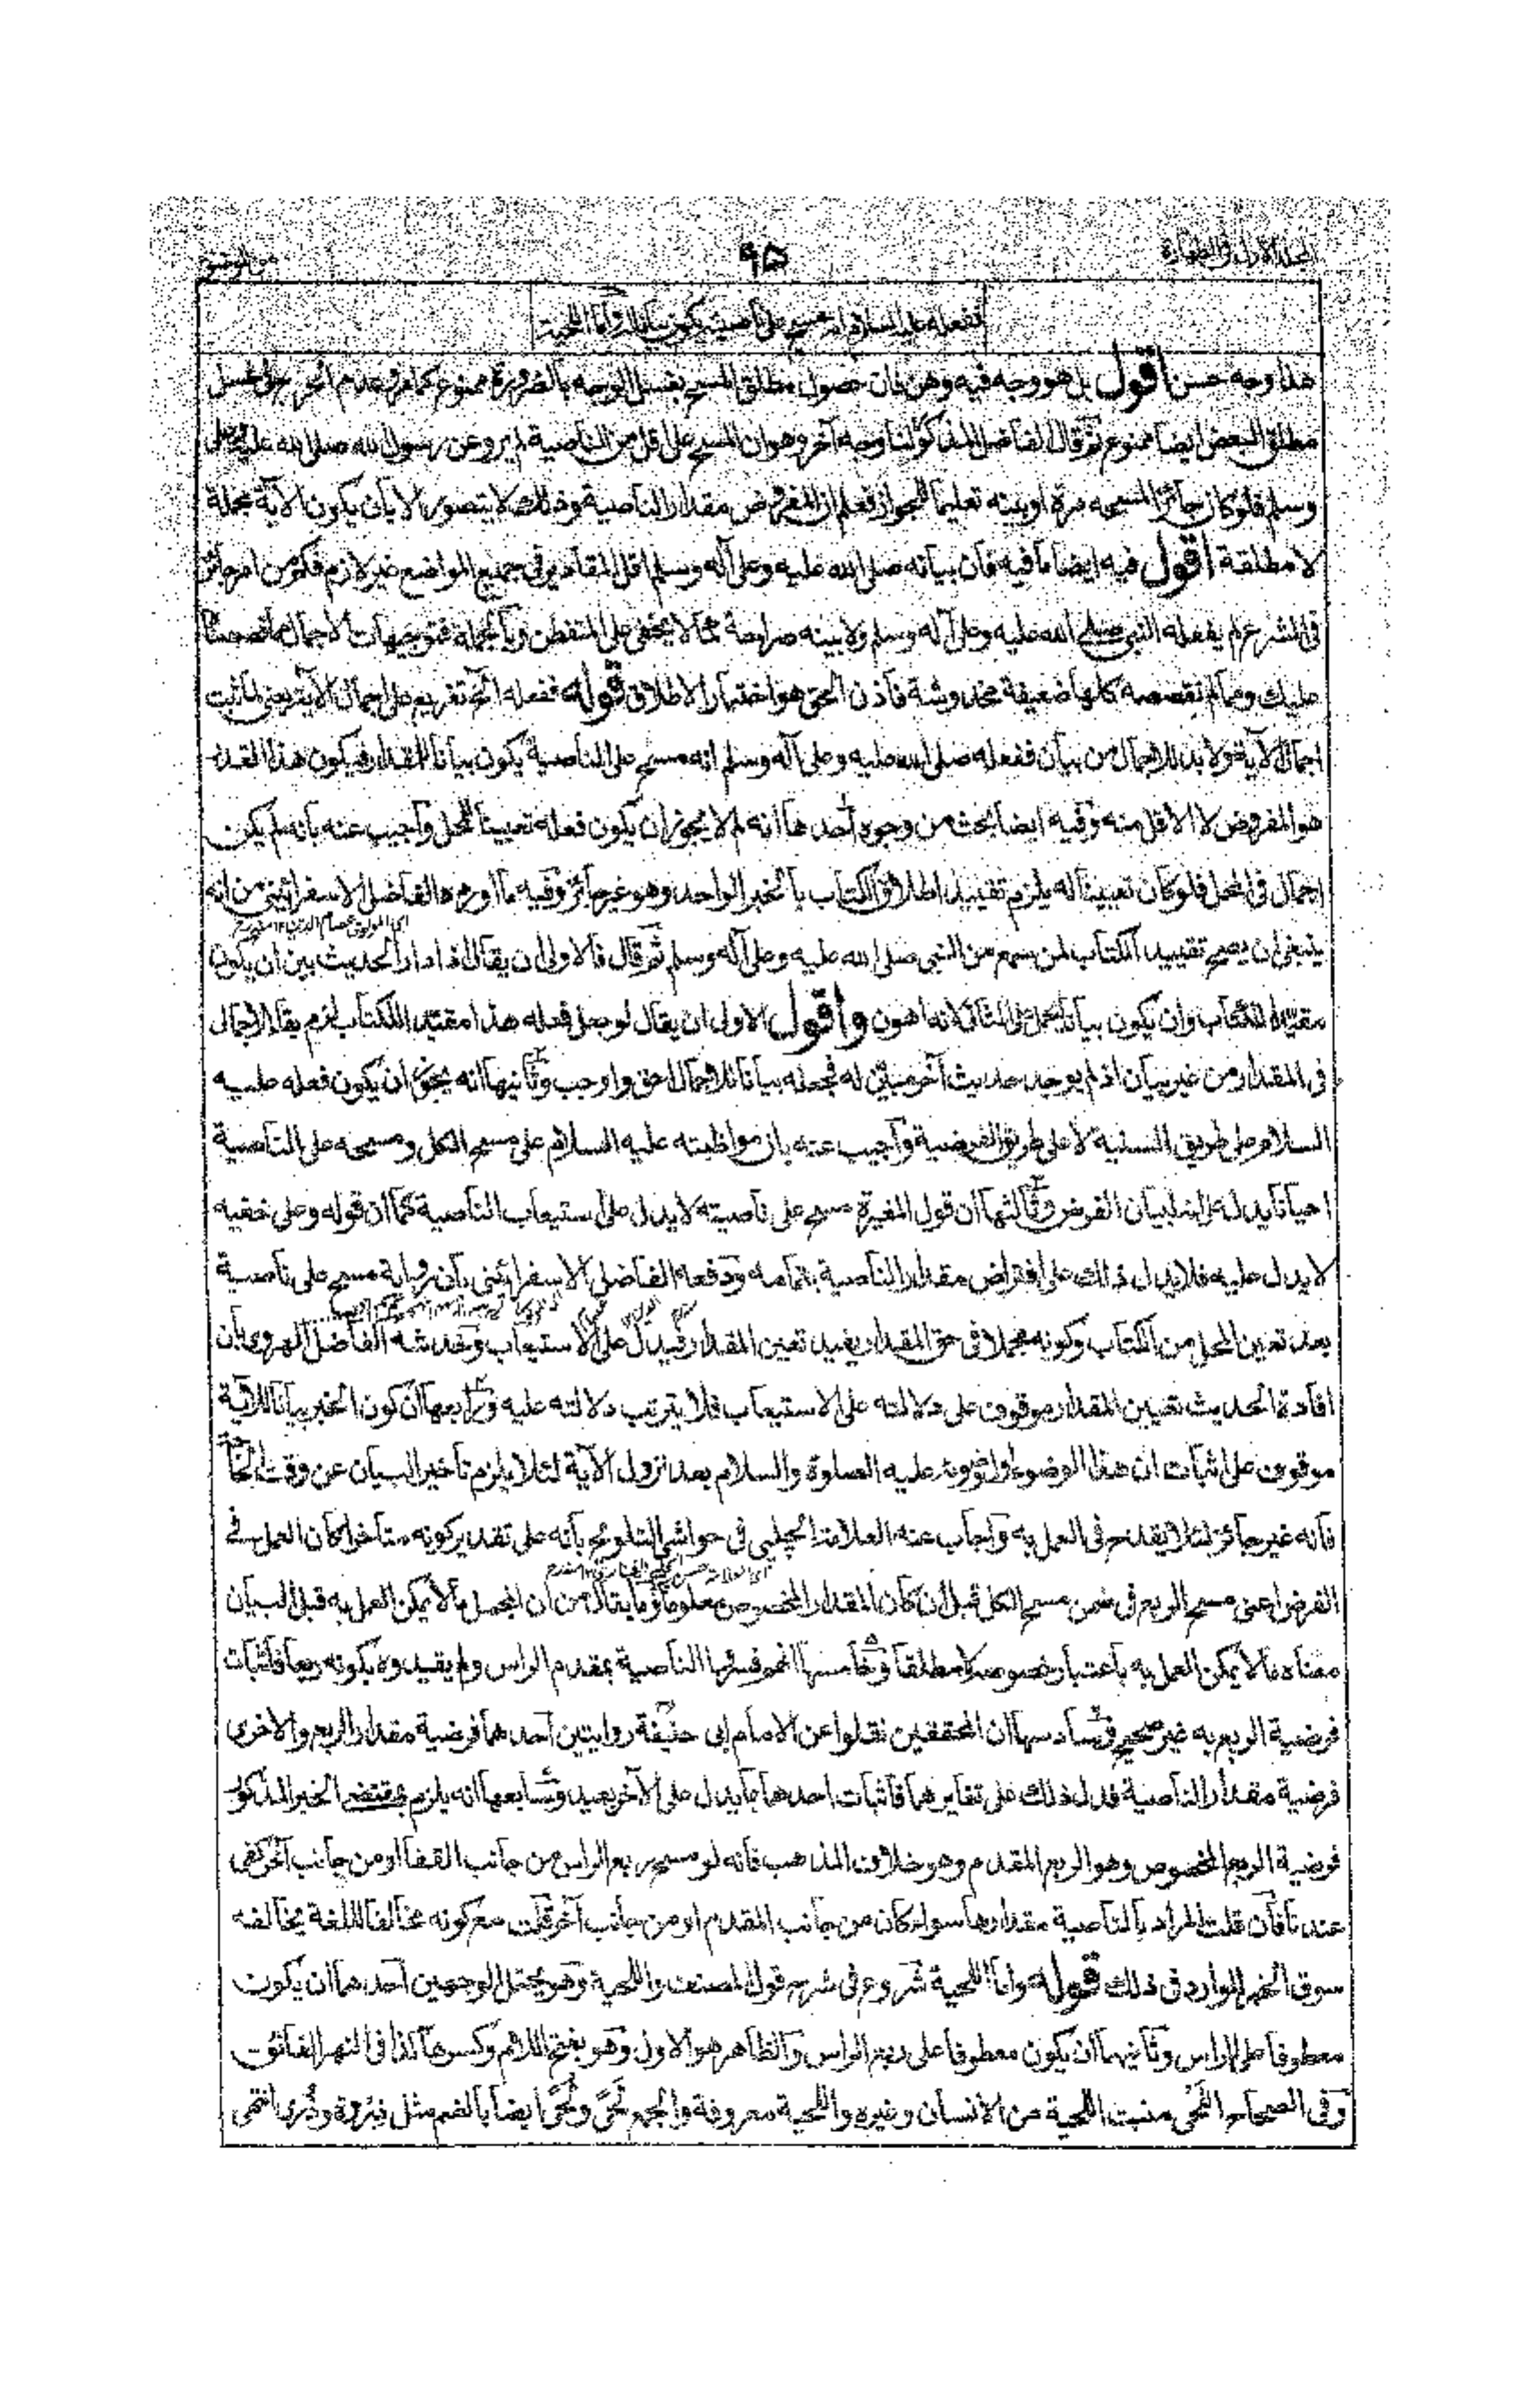 المجلد الاول فى الطهارة ٩٥ من الوضوء
ففعله عليه السلام انه مسح على ناصيته يكون بيانا له واما اللحية
هذا وجه حسن اقول بل هو وجه فيه وهن بان حصول مطلق المسح بغسل الوجه بالضرورة ممنوع كما مر وعدم اجزاء غسل
مطلق البعض ايضا ممنوع ثم قال الفاضل المذكور لنا وجه آخر وهو ان المسح على اقل من الناصية لم يرو عن رسول الله صلى الله عليه وعلى
وسلم فلو كان جائزا لمسحه مرة او بينه تعليما للجواز فعلم ان المفروض مقدار الناصية وذلك لا يتصور الا بان يكون الآية مجملة
لا مطلقة اقول فيه ايضا ما فيه فان بيانه صلى الله عليه وعلى آله وسلم اقل المقادير فى جميع المواضع غير لازم فكم من امر جائز
فى الشرع لم يفعله النبى صلى الله عليه وعلى آله وسلم ولا بينه صراحة كما لا يخفى على المتفطن وبالجملة فتوجيهات الاجمال ما قصصنا
عليك وما لم نقصصه كلها ضعيفة مخدوشة فاذن الحق هو اختيار الاطلاق قوله ففعله الخ تفريع على اجمال الآية يعنى لما ثبت
اجمال الآية ولا بد للاجمال من بيان ففعله صلى الله عليه وعلى آله وسلم انه مسح على الناصية يكون بيانا للمقدار فيكون هذا القدر
هو المفروض لا الاقل منه وفيه ايضا بحث من وجوه احدها انه لم لا يجوز ان يكون فعله تعيينا للمحل واجيب عنه بانه لم يكن
اجمال فى المحل فلو كان تعيينا له يلزم تقييد اطلاق الكتاب بالخبر الواحد وهو غير جائز وفيه ما اورده الفاضل الاسفرائنى من انه
اى المولوى عصام الدين ١٢ منه
ينبغى ان يصح تقييد الكتاب لمن سمع من النبى صلى الله عليه وعلى آله وسلم ثم قال فالاولى ان يقال اذا دار الحديث بين ان يكون
مقيدا للكتاب وان يكون بيانا يحمل على الثانى لانه اهون واقول الاولى ان يقال لو جعل فعله هذا مقيد الكتاب لزم بقاء الاجمال
فى المقدار من غير بيان اذ لم يوجد حديث آخر مبين له فجعله بيانا للاجمال احق واوجب وثانيها انه يجوز ان يكون فعله عليه
السلام على طريق السنية لا على طريق الفرضية واجيب عنه بان مواظبته عليه السلام على مسح الكل ومسحه على الناصية
احيانا يدل على انه لبيان الفرض وثالثها ان قول المغيرة مسح على ناصيته لا يدل على استيعاب الناصية كما ان قوله وعلى خفيه
لا يدل عليه فلا يدل ذلك على افتراض مقدار الناصية بتمامه ودفعه الفاضل الاسفرائنى بان رواية مسح على ناصية
بعد تعين المحل من الكتاب وكونه مجملا فى حق المقدار يفيد تعين المقدار فيدل على الاستيعاب وخدشه الفاضل الهروى بان
افادة الحديث تعيين المقدار موقوف على دلالته على الاستيعاب فلا يترتب دلالته عليه ورابعها ان كون الخبر بيانا للآية
موقوف على اثبات ان هذا الوضوء اول وضوئه عليه الصلوة والسلام بعد نزول الآية لئلا يلزم تاخير البيان عن وقت الحاجة
فانه غير جائز لئلا يقدح فى العمل به واجاب عنه العلامة الچلپى فى حواشى التلويح بانه على تقدير كونه متاخرا كان العمل فى
الفرض اعنى مسح الربع فى ضمن مسح الكل قبل ان كان المقدار المخصوص معلوما وما يقال من ان المجمل ما لا يمكن العمل به قبل البيان
معناه ما لا يمكن العمل به باعتبار خصوصه لا مطلقا وخامسها انهم فسروا الناصية بمقدم الراس ولم يقيدوه بكونه ربعا فاثبات
فرضية الربع به غير صحيح وسادسها ان المحققين نقلوا عن الامام ابى حنيفة روايتين احدهما فرضية مقدار الربع والاخرى
فرضية مقدار الناصية فدل ذلك على تغايرهما فاثبات احدهما بما يدل على الآخر بعيد وسابعها انه يلزم بمقتضى الخبر المذكور
فرضية الربع المخصوص وهو الربع المقدم وهو خلاف المذهب فانه لو مسح ربع الراس من جانب القفا او من جانب آخر كفى
عندنا فان قلت المراد بالناصية مقدارها سواء كان من جانب المقدم او من جانب آخر قلت مع كونه مخالفا للغة يخالفه
سوق الخبر الوارد فى ذلك قوله واما اللحية شروع فى شرح قول المصنف واللحية وهو يحتمل الوجهين احدهما ان يكون
معطوفا على الراس وثانيهما ان يكون معطوفا على ربع الراس والظاهر هو الاول وهو بفتح اللام وكسرها كذا فى النهر الفائق
وفى الصحاح اللحى منبت اللحية من الانسان وغيره واللحية معروفة والجمع لحى ولحى ايضا بالضم مثل ذروة وذرى انتهى